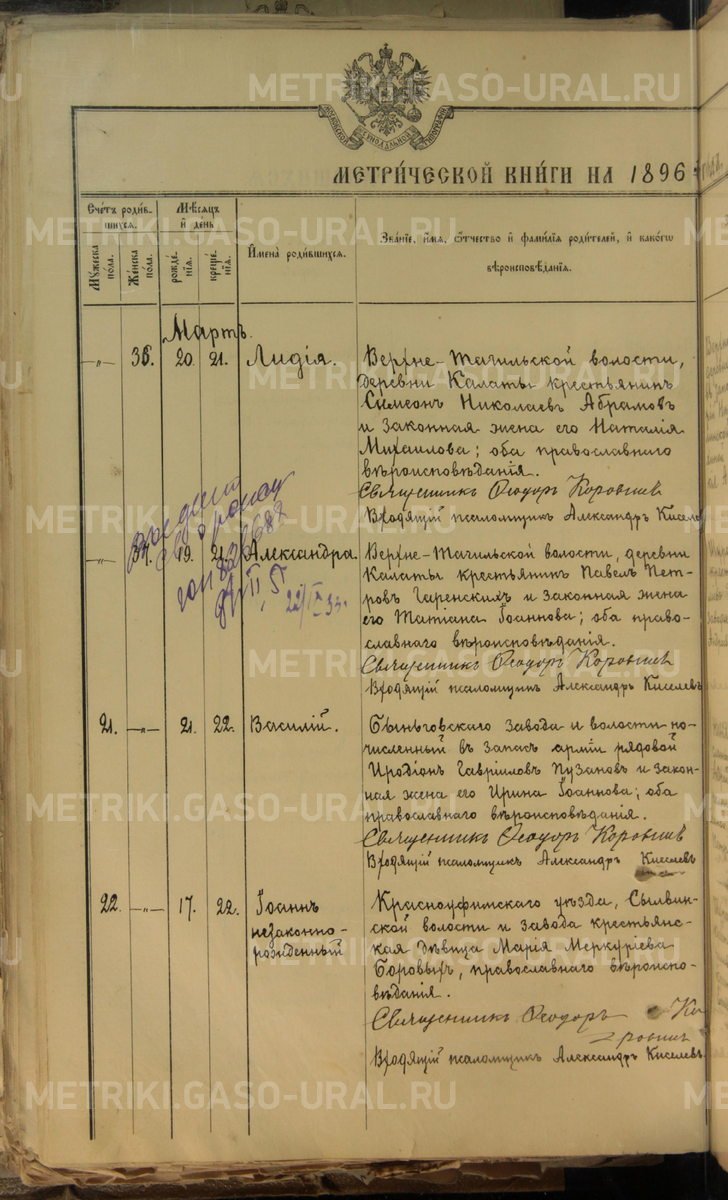 МЕТРИ́ЧЕСКОЙ КНИ́ГИ НА 1896
Сче́тъ роди́в-
шихся.
Мѣ́сяцъ
и́ де́нь
Му́жеска
пола.
Же́нска
пола.
рожде́-
нія.
креще́-
нія.
Имена̀ роди́вшихся.
Зва́ніе, и́мя, о́тчество и́ фами́лія роди́телей, и́ како́гѡ
вѣроисповѣ́данія.
Мартъ.
—„— 36. 20. 21. Лидія.
Верхне-Тагильской волости,
деревни Калаты крестьянинъ
Симеонъ Николаевъ Абрамовъ
и законная жена его Наталія
Михаилова; оба православнаго
вѣроисповѣданія.
Священникъ Ѳеодоръ Коровинъ
Входящій псаломщикъ Александръ Киселев
37. 19. 21. Александра.
Верхне-Тагильской волости, деревни
Калаты крестьянинъ Павелъ Пет-
ровъ Гаренскихъ и законная жена
его Татіана Іоаннова; оба право-
славнаго вѣроисповѣданія.
Священникъ Ѳеодоръ Коровинъ
Входящій псаломщикъ Александръ Киселевъ
21. —„— 21. 22. Василій.
Быньговскаго завода и волости по-
численный въ запасъ арміи рядовой
Иродіонъ Гавріиловъ Пузановъ и закон-
ная жена его Ирина Іоаннова; оба
православнаго вѣроисповѣданія.
Священникъ Ѳеодоръ Коровинъ
Входящій псаломщикъ Александръ Киселевъ
22. —„— 17. 22. Іоаннъ
незаконно-
рожденный
Красноуфимскаго уѣзда, Сылвин-
ской волости и завода крестьянс-
кая дѣвица Марія Меркуріева
Боровыхъ, православнаго вѣроиспо-
вѣданія.
Священникъ Ѳеодоръ Ко
ровинъ
Входящій псаломщикъ Александръ Киселевъ
METRIKI.GASO-URAL.RU